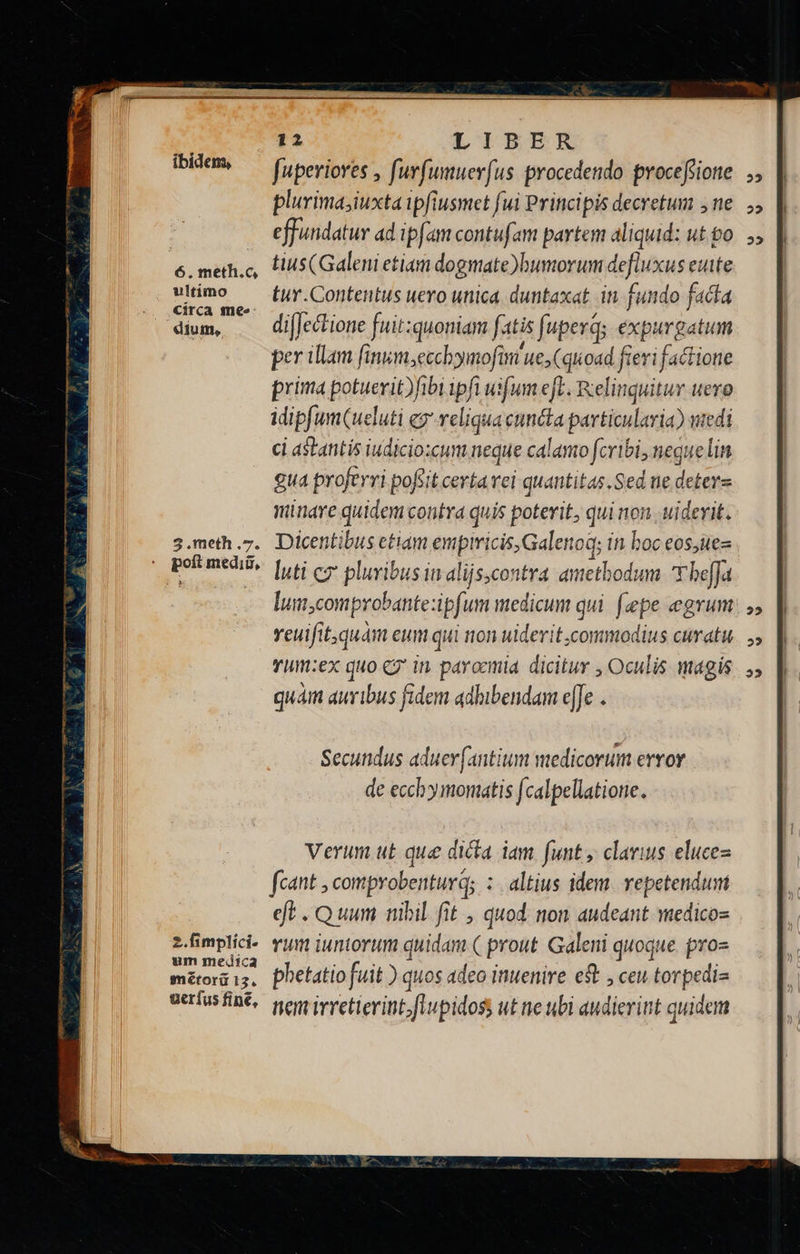 12 LIBER
ibidem,
ſuperiores , ſurſumuerſus procedendo proceſsione ,,
plurima,iuxta ipſiusmet ſui Principis decretum , ne ,,
effundatur ad ipſam contuſam partem aliquid: ut po ,,
6. meth.c,
ultimo
circa me-
dium,
tius(Galeni etiam dogmate)humorum defluxus euite
tur.Contentus uero unica duntaxat in fundo facta
diſſectione fuit:quoniam ſatis ſuperq; expurgatum
per illam ſinum,ecchymoſim ue,(quoad fieri factione
prima potuerit)ſibi ipſi uiſum eſt. Relinquitur uero
idipſum(ueluti & reliqua cuncta particularia) medi
ci astantis iudicio:cum neque calamo ſcribi, neque lin
gua proferri poſsit certa rei quantitas.Sed ne deter-
minare quidem contra quis poterit, qui non uiderit.
3.meth.7.
poſt mediũ,
Dicentibus etiam empiricis,Galenoq; in hoc eos,ue-
luti & pluribus in alijs,contra amethodum Theſſa
lum,comprobante:ipſum medicum qui ſæpe ægrum ,,
reuiſit,quàm eum qui non uiderit,commodius curatu ,,
rum:ex quo & in parœmia dicitur , Oculis magis ,,
quàm auribus fidem adhibendam eſſe .
Secundus aduerſantium medicorum error
de ecchymomatis ſcalpellatione.
Verum ut quæ dicta iam ſunt , clarius eluce-
ſcant , comprobenturq; : altius idem repetendum
eſt . Quum nihil ſit , quod non audeant medico-
2.ſimplici-
um medica
mẽtorũ 13.
uerſus finẽ,
rum iuniorum quidam ( prout Galeni quoque pro-
phetatio fuit ) quos adeo inuenire est , ceu torpedi-
nem irretierint,ſtupidos; ut ne ubi audierint quidem